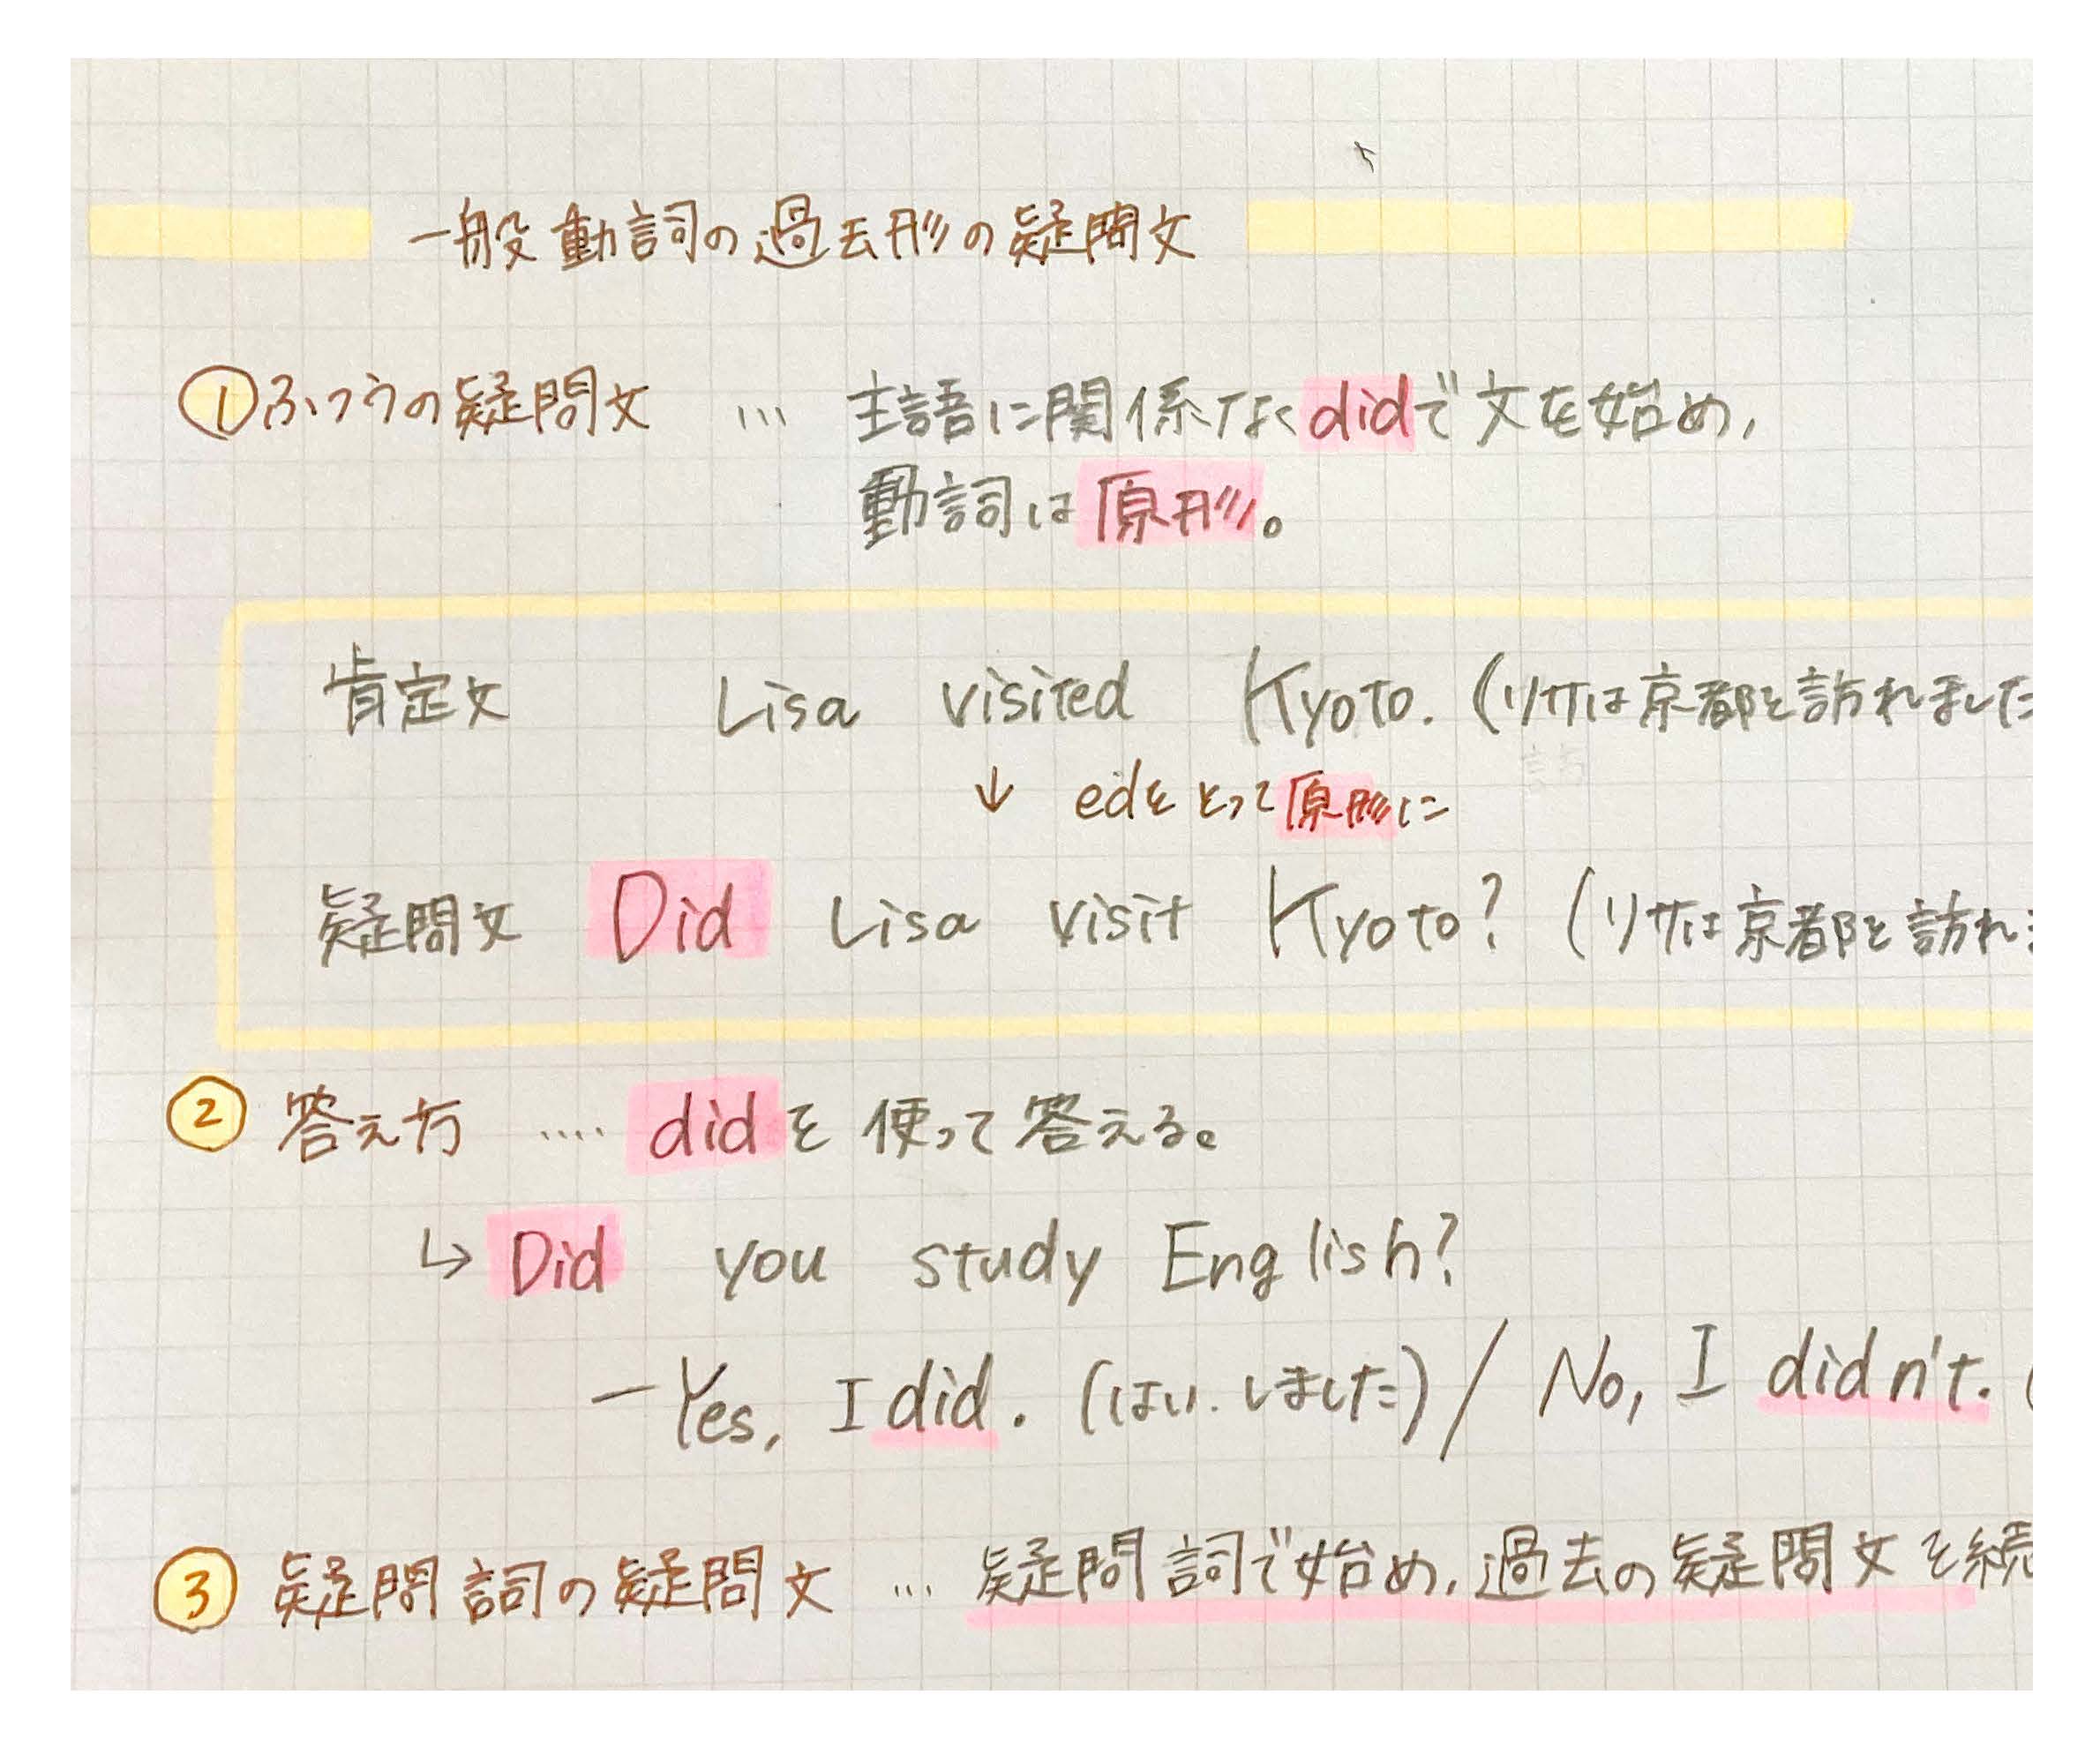 一般動詞の過去形の疑問文
①ふつうの疑問文 … 主語に関係なくdidで文を始め,
動詞は原形。
肯定文 Lisa visited Kyoto. (リサは京都を訪れました
↓ edをとって原形に
疑問文 Did Lisa visit Kyoto? (リサは京都を訪れま
② 答え方 …. didを使って答える。
↳ Did you study English?
— Yes, I did. (はい. しました) / No, I didn't. (
③ 疑問詞の疑問文 … 疑問詞で始め, 過去の疑問文を続